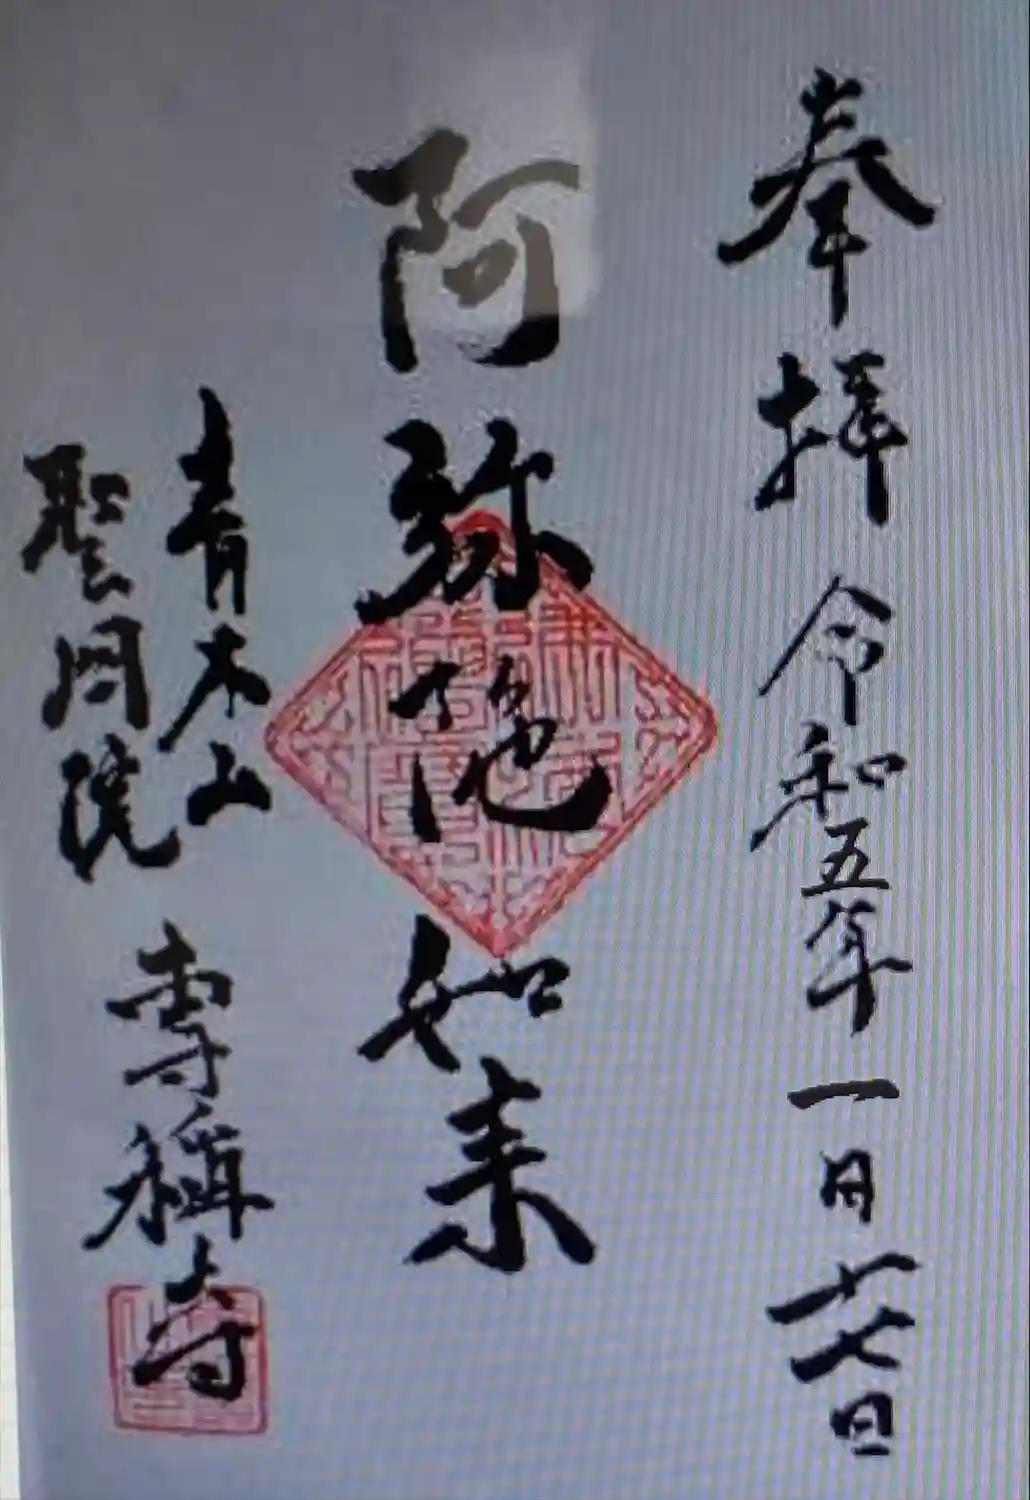 奉拝 令和五年一月廿七日
阿弥陀如来
青木山
聖同院 専称寺